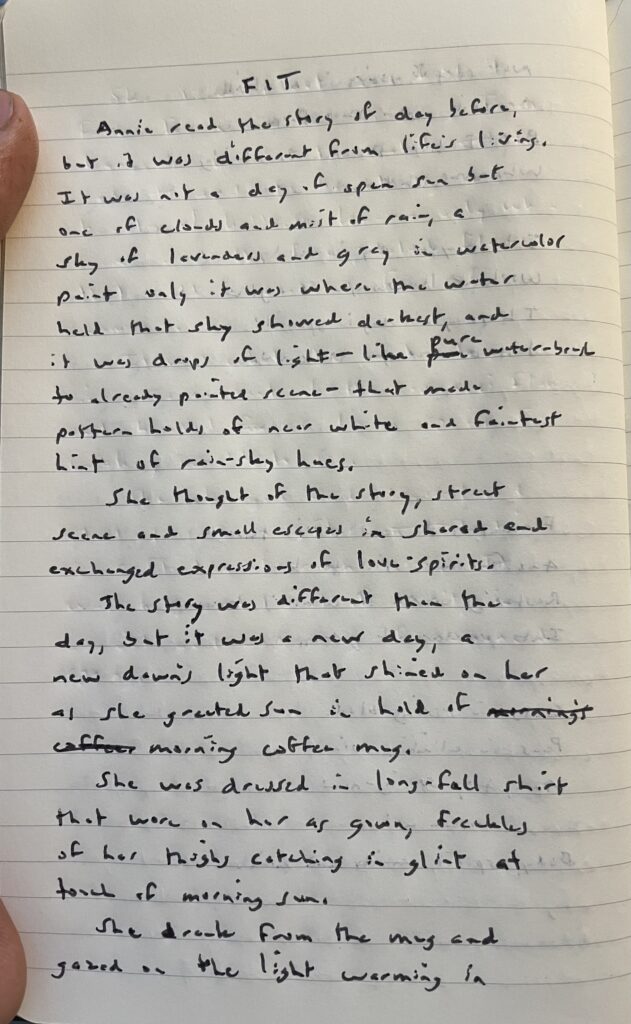 FIT
Annie read the story of day before,
but it was different from life's living.
It was not a day of open sun but
one of clouds and mist of rain, a
sky of lavenders and grey in watercolor
paint only it was where the water
held that sky showed darkest, and
it was drops of light — like pure water-brush
to already painted scene — that made
pattern holds of near white and faintest
hint of rain-sky hues.
She thought of the story, street
scene and small escapes in shared and
exchanged expressions of love-spirits.
The story was different than the
day, but it was a new day, a
new dawn's light that shined on her
as she greeted sun in hold of morning's
coffee morning coffee mug.
She was dressed in long-fall shirt
that wore on her as gown, freckles
of her thighs catching in glint at
touch of morning sun.
She drank from the mug and
gazed on the light warming in